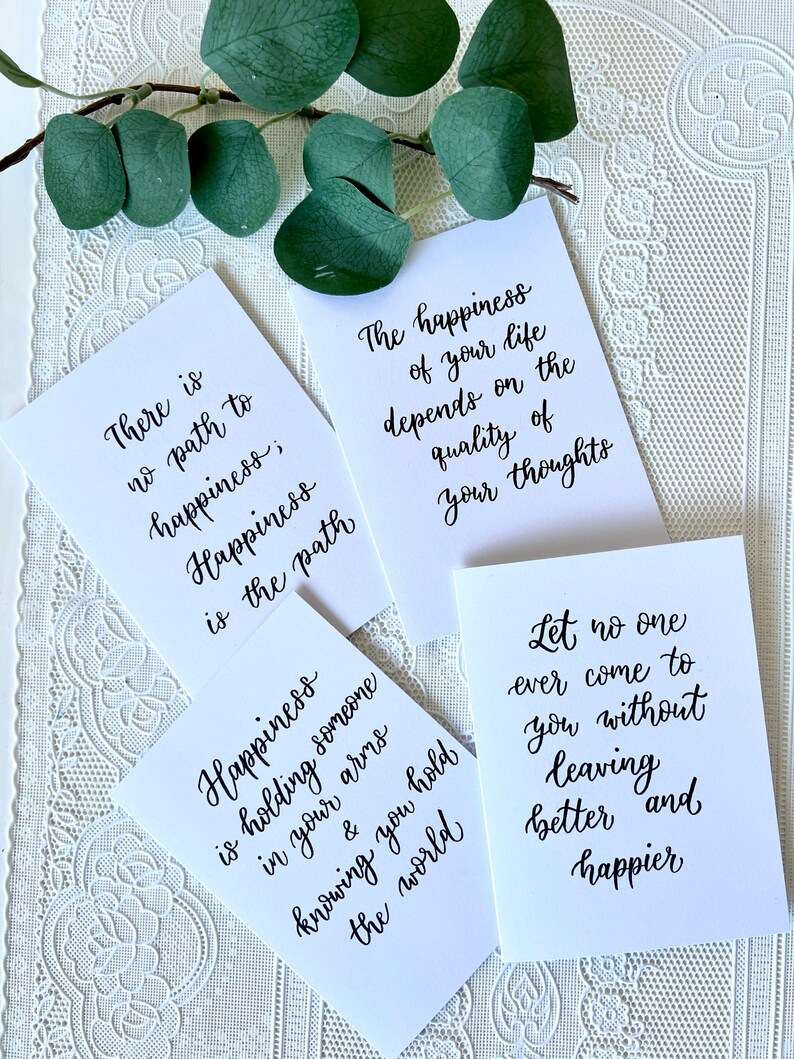 There is
no path to
happiness;
Happiness
is the path
The happiness
of your life
depends on the
quality of
your thoughts
Happiness
is holding someone
in your arms
&
knowing you hold
the world
Let no one
ever come to
you without
leaving
better and
happier